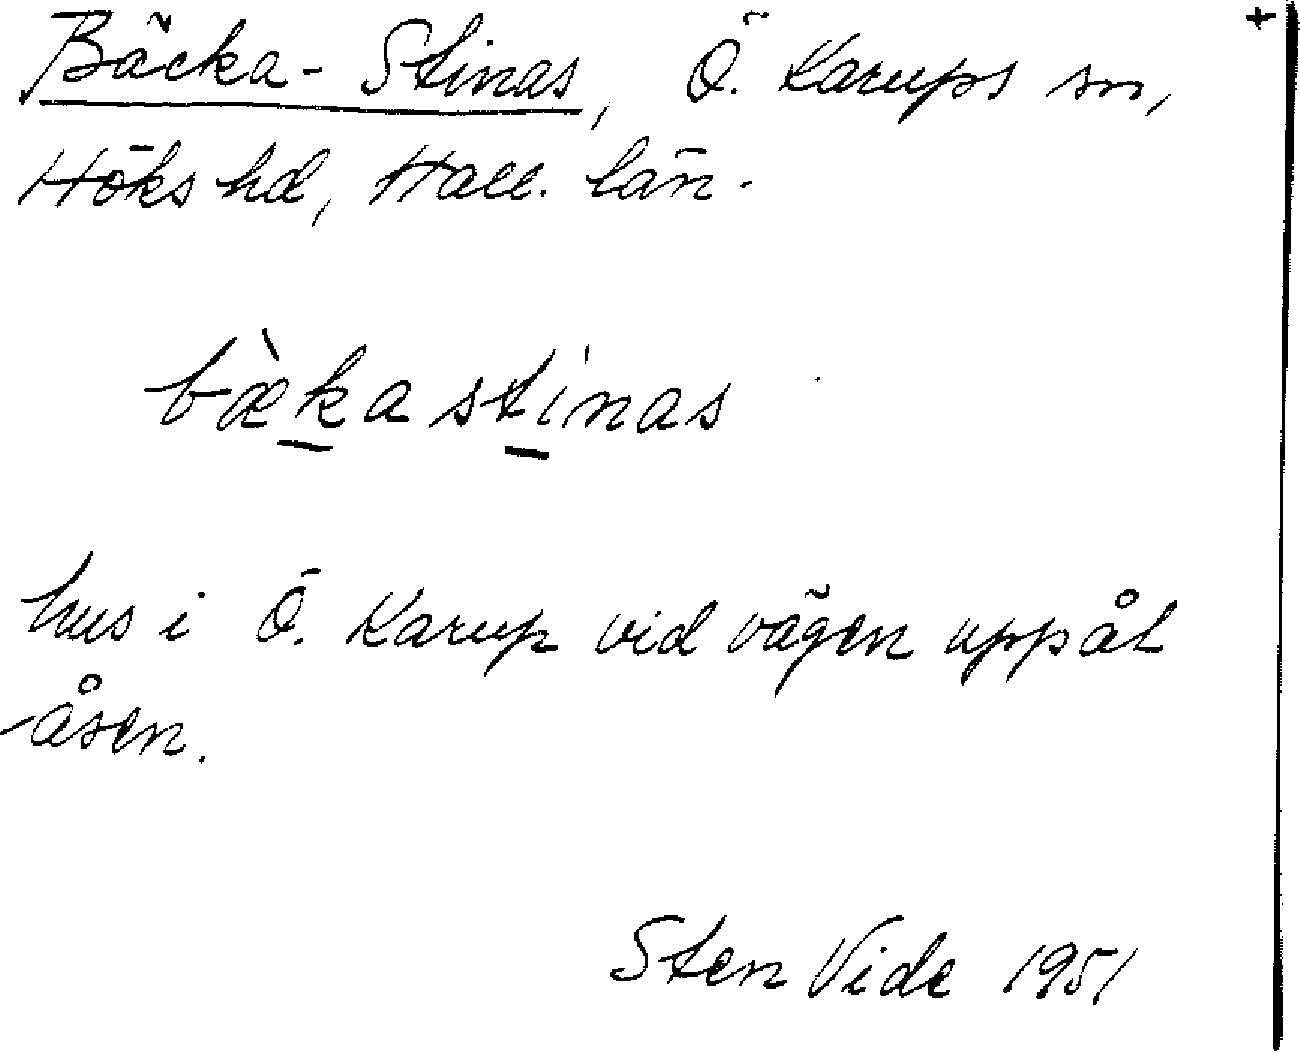 Bäcka-Stinas, Ö. Karups sn, +
Höks hd, Hall. län.
bæ̀kastínas
hus i Ö. Karup vid vägen uppåt
åsen.
Sten Vide 1951